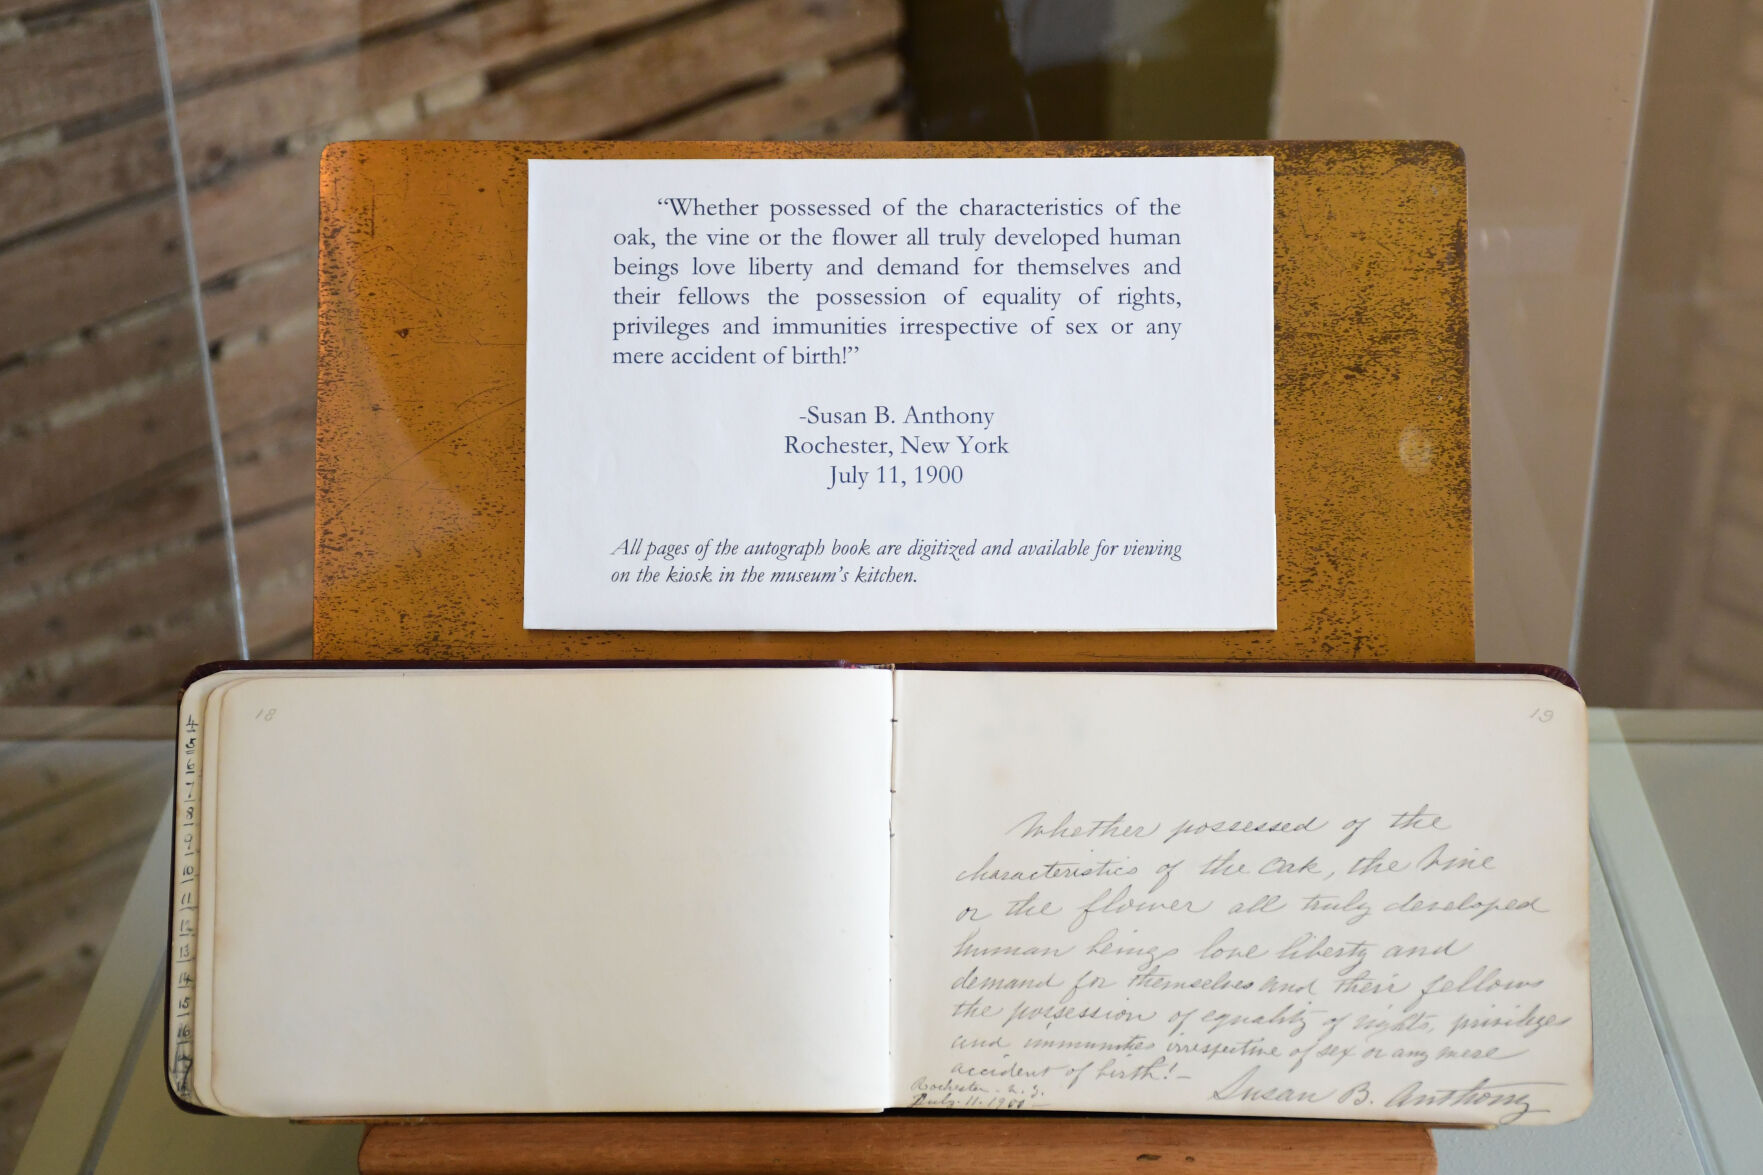 “Whether possessed of the characteristics of the
oak, the vine or the flower all truly developed human
beings love liberty and demand for themselves and
their fellows the possession of equality of rights,
privileges and immunities irrespective of sex or any
mere accident of birth!”
-Susan B. Anthony
Rochester, New York
July 11, 1900
All pages of the autograph book are digitized and available for viewing
on the kiosk in the museum’s kitchen.
18
19
Whether possessed of the
characteristics of the oak, the vine
or the flower all truly developed
human beings love liberty and
demand for themselves and their fellows
the possession of equality of rights, privileges
and immunities irrespective of sex or any mere
accident of birth! -
Rochester - N.Y.
July. 11. 1900 -
Susan B. Anthony